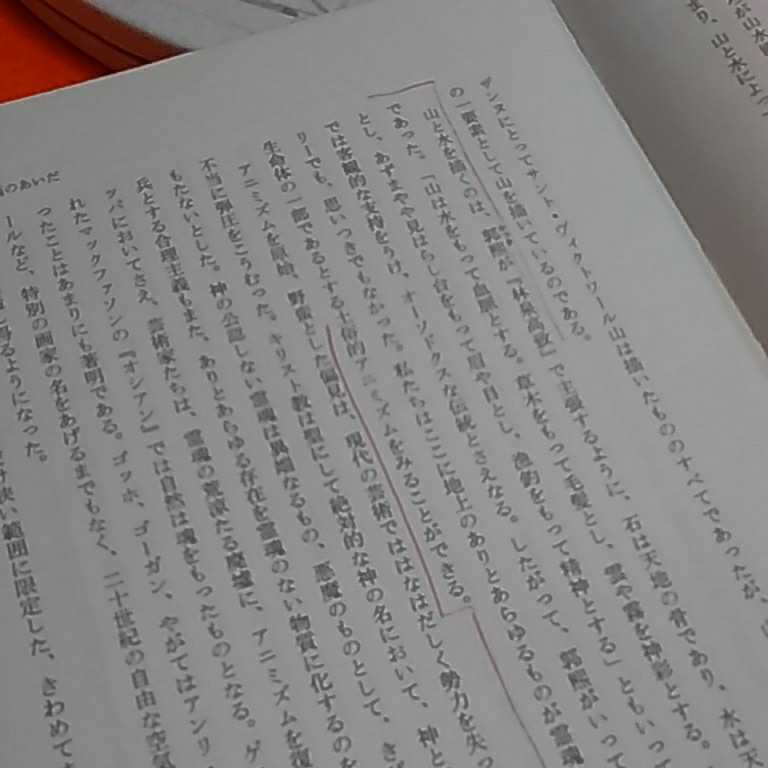 が山水
まり、山と水によっ
ザンヌにとってサント・ヴィクトワール山は描いたもののすべてであったが、
の一要素として山を描いているのである。
山と水を描くのは、郭熙が『林泉高致』で主張するように、石は天地の骨であり、水は天
であった。「山は水をもって血脈とする。草木をもって毛髪とし、雲や霧を神彩とする。
とし、あずまや見はらし台をもって眉や目とし、漁釣をもって精神とする」ともいって
では客観的な支持をうけ、オーソドクスな伝統とさえなる。したがって、郭熙がいって
リーでも、思いつきでもなかった。私たちはここに地上のありとあらゆるものが霊魂
生命体の一部であるとする土俗的アニミズムをみることができる。
アニミズムを原始、野蛮とした偏見は、現代の芸術でははなはだしく勢力を失っ
不当に弾圧をこうむった。キリスト教は聖にして絶対的な神の名において、神と
もたないとした。神の公認しない霊魂は異端なるもの、悪魔のものとして、
兵とする合理主義もまた、ありとあらゆる存在を霊魂のない物質に化するのを
ッパにおいてさえ、芸術家たちは、霊魂の荒涼たる廃墟に、アニミズムを復
れたマックファソンの『オシアン』では自然は魂をもったものとなる。ゲ
ったことはあまりにも著明である。ゴッホ、ゴーガン、やがてはアンリ
ールなど、特別の画家の名をあげるまでもなく、二十世紀の自由な空気
得るようになった。
狭い範囲に限定した、きわめて
のあいだ